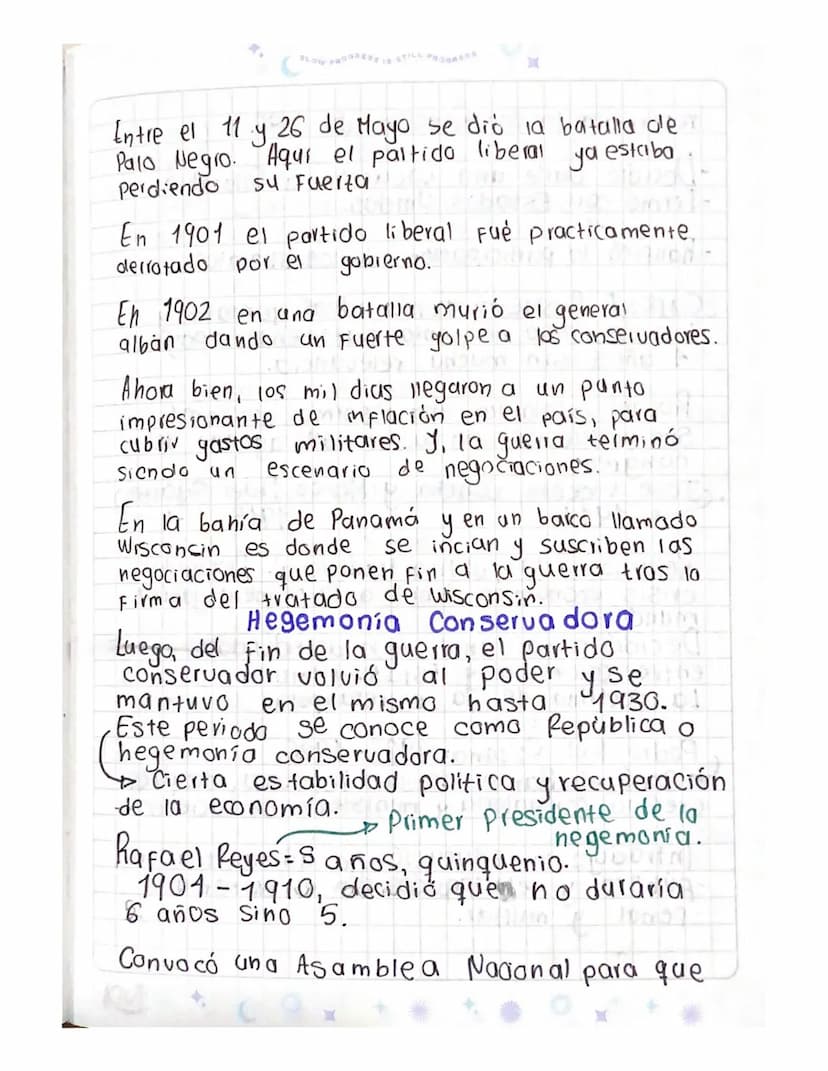 SLOW PROGRESS IS STILL PROGRESS
Entre el 11 y 26 de Mayo se dió la batalla de
Palo Negro. Aquí el partido liberal ya estaba
perdiendo su Fuerza
En 1901 el partido liberal fué practicamente
derrotado por el gobierno.
En 1902 en una batalla murió el general
albán dando un Fuerte golpe a los conservadores.
Ahora bien, los mil dias llegaron a un punto
impresionante de inflación en el país, para
cubrir gastos militares. Y, la guerra terminó
siendo un escenario de negociaciones.
En la bahía de Panamá y en un barco llamado
Wisconcin es donde se incian y suscriben las
negociaciones que ponen fin a la guerra tras la
Firma del tratado de wisconsin.
Hegemonía Conservadora
Luego, del fin de la guerra, el partido
conservador volvió al poder y se
mantuvo en el mismo hasta 1930.
Este periodo se conoce como República o
hegemonía conservadora.
→ Cierta estabilidad política y recuperación
de la economía.
→ Primer Presidente de la
hegemonía.
Rafael Reyes = 5 años, quinquenio.
1904 - 1910, decidió que no duraría
6 años sino 5.
Convocó una Asamblea Nacional para que